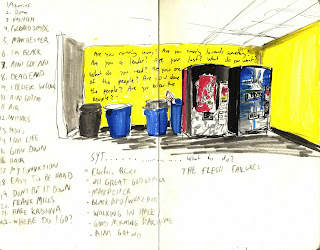 AQUARIUS
2. DONNA
3. HASHISH
5. MANCHESTER
6. I'M BLACK
7. AIN'T GOT NO
8. DEAD END
9. I BELIEVE IN LOVE
10. AIN'T GOT NO
11. AIR
12. INITIALS
14. I GOT LIFE
15. GOIN' DOWN
16. HAIR
17. MY CONVICTION
18. EASY TO BE HARD
19. DON'T PUT IT DOWN
20. FRANK MILLS
21. HARE KRISHNA
22. WHERE DO I GO?
Are you running away? Are you running towards something?
Are you a leader? Are you lost? What do you want?
What do you need? Are you one
of the people? Are you above
the people? Are you below the
people?
- ELECTRIC BLUES
- OH GREAT GOD OF POWER
- MANCHESTER
- BLACK BOYS/WHITE BOYS
- WALKING IN SPACE
- GOOD MORNING STARSHINE
- AIN'T GOT NO
What to do?
THE FLESH FAILURES